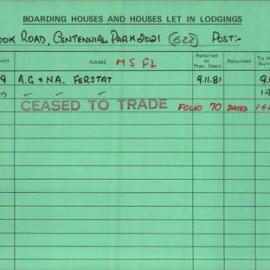 BOARDING HOUSES AND HOUSES LET IN LODGINGS
OOK ROAD, CENTENNIAL PARK 2021 (622) POST:-
NAME MS FL
Referred to Plan. Dept.
Returned
9 A.G & N.A. FERSTAT 9.11.81
CEASED TO TRADE FOLIO 70 DATED 1-6-